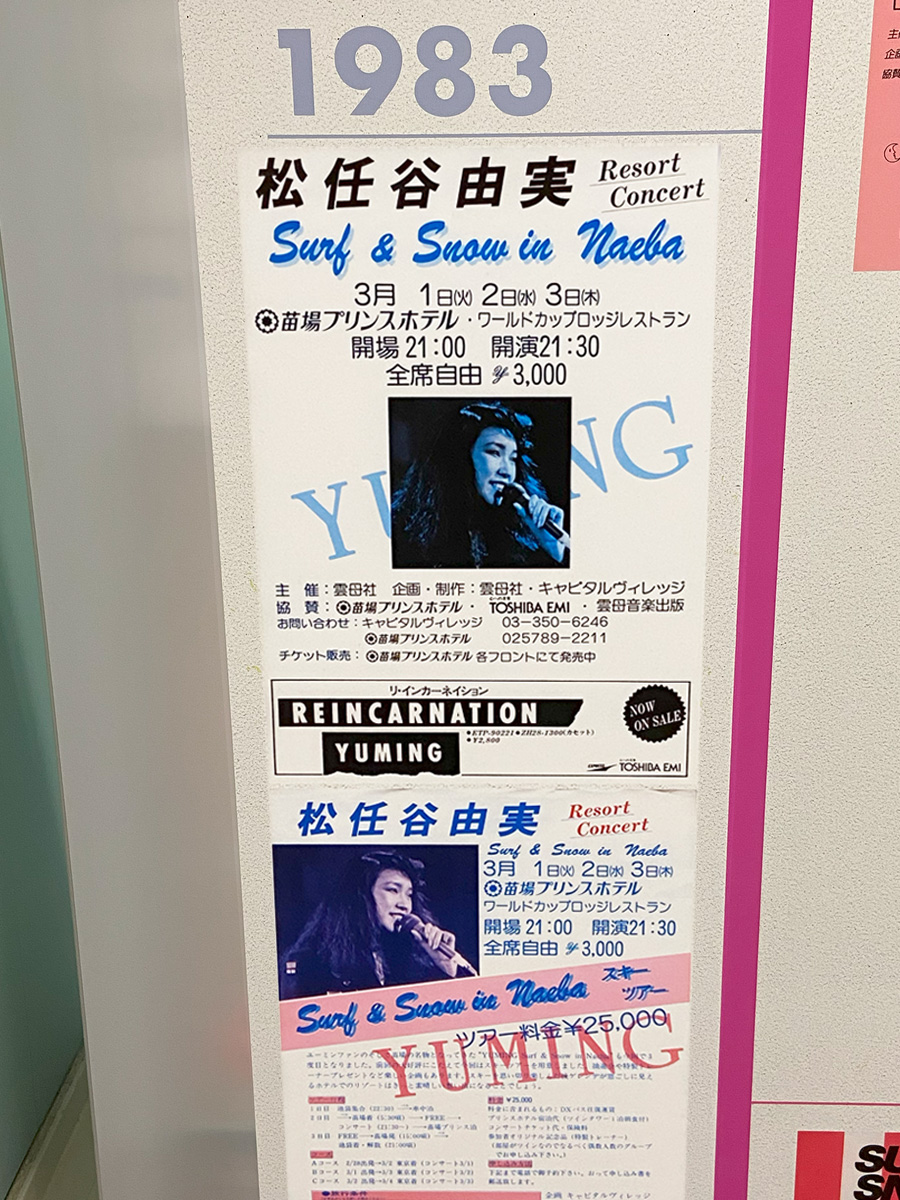 1983
松任谷由実 Resort Concert
Surf & Snow in Naeba
3月 1日(火) 2日(水) 3日(木)
苗場プリンスホテル・ワールドカップロッジレストラン
開場 21:00 開演21:30
全席自由 ¥3,000
YUMING
主 催：雲母社 企画・制作：雲母社・キャピタルヴィレッジ
協 賛：苗場プリンスホテル・TOSHIBA EMI・雲母音楽出版
お問い合わせ：キャピタルヴィレッジ 03-350-6246
苗場プリンスホテル 025789-2211
チケット販売：苗場プリンスホテル各フロントにて発売中
リ・インカーネイション
REINCARNATION
YUMING
●ETP-90221●ZH28-1300(カセット)
●¥2,800
NOW ON SALE
TOSHIBA EMI
松任谷由実 Resort Concert
Surf & Snow in Naeba
3月 1日(火) 2日(水) 3日(木)
苗場プリンスホテル
ワールドカップロッジレストラン
開場 21:00 開演21:30
全席自由 ¥3,000
Surf & Snow in Naeba スキーツアー
ツアー料金¥25,000
YUMING
料金 ¥25,000
料金に含まれるもの：DXバス往復運賃
コンサートチケット代・保険料
参加者オリジナル記念品（特製トレーナー）
お申し込み下さい。）
申し込み方法
企画 キャピタルヴィレッジ